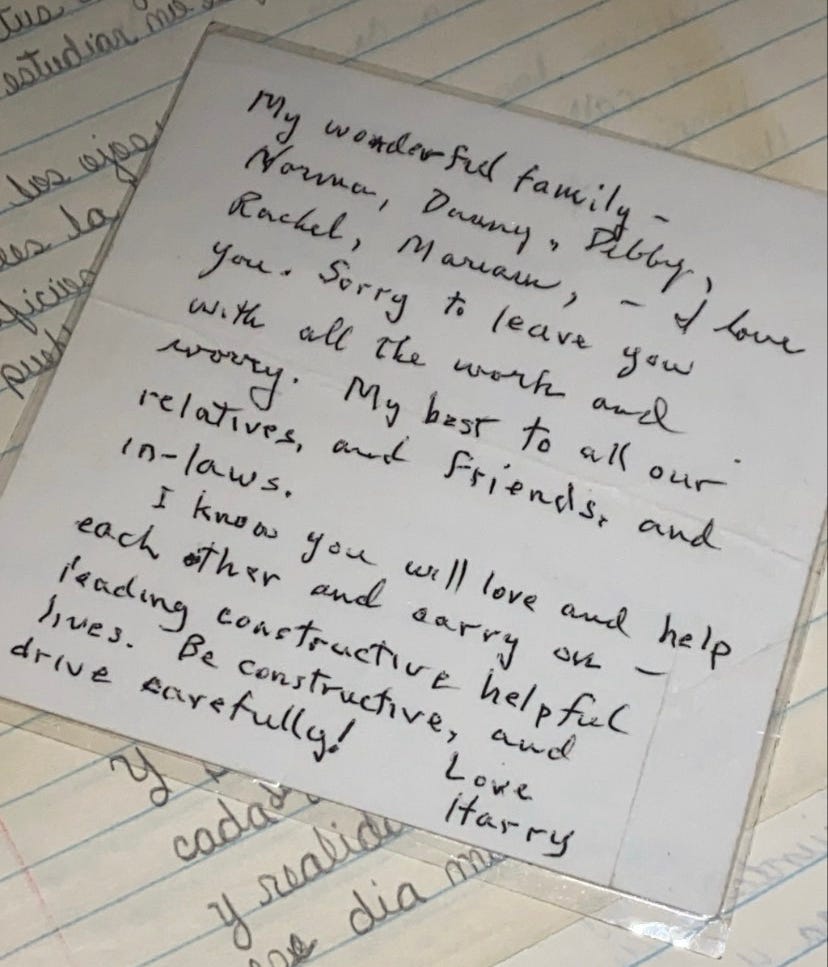 estudiar
los ojos
es la
My wonderful family -
Norma, Danny, Debby,
Rachel, Mariam, - I love
you. Sorry to leave you
with all the work and
worry. My best to all our
relatives, and friends, and
in-laws.
I know you will love and help
each other and carry on -
leading constructive helpful
lives. Be constructive, and
drive carefully!
Love
Harry
y
cada
y
dia